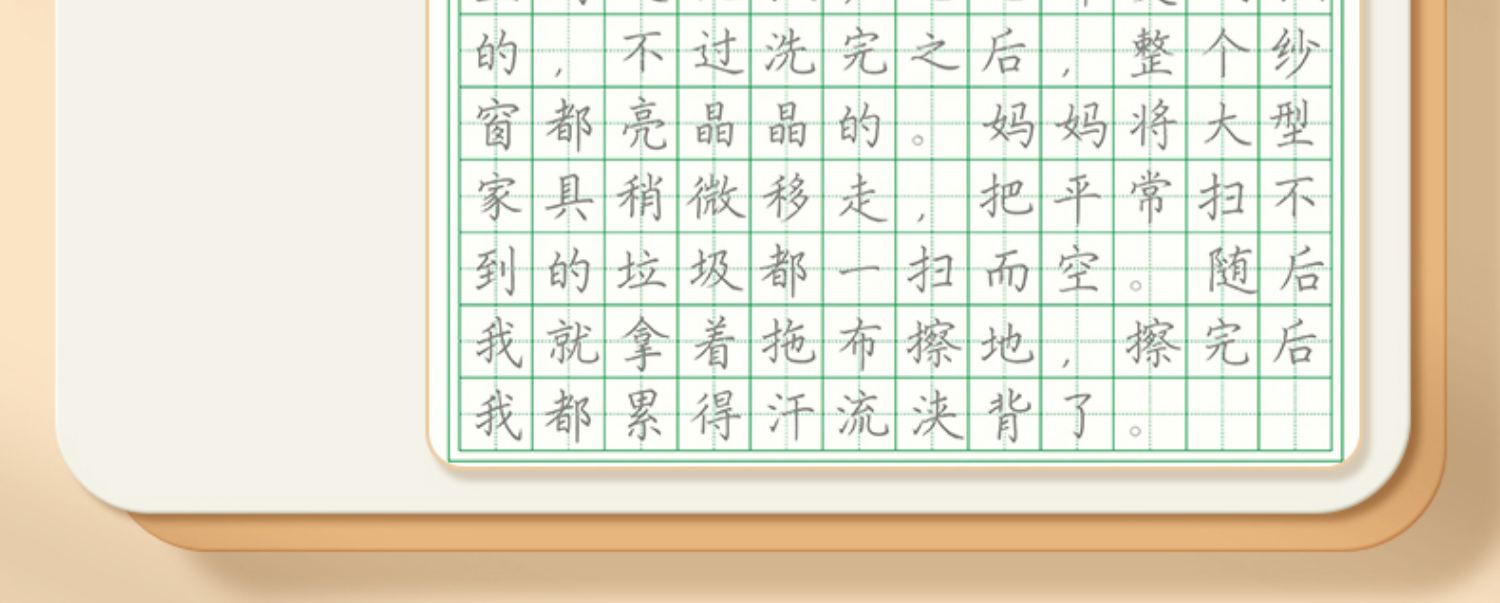 的，不过洗完之后，整个纱
窗都亮晶晶的。妈妈将大型
家具稍微移走，把平常扫不
到的垃圾都一扫而空。随后
我就拿着拖布擦地，擦完后
我都累得汗流浃背了。